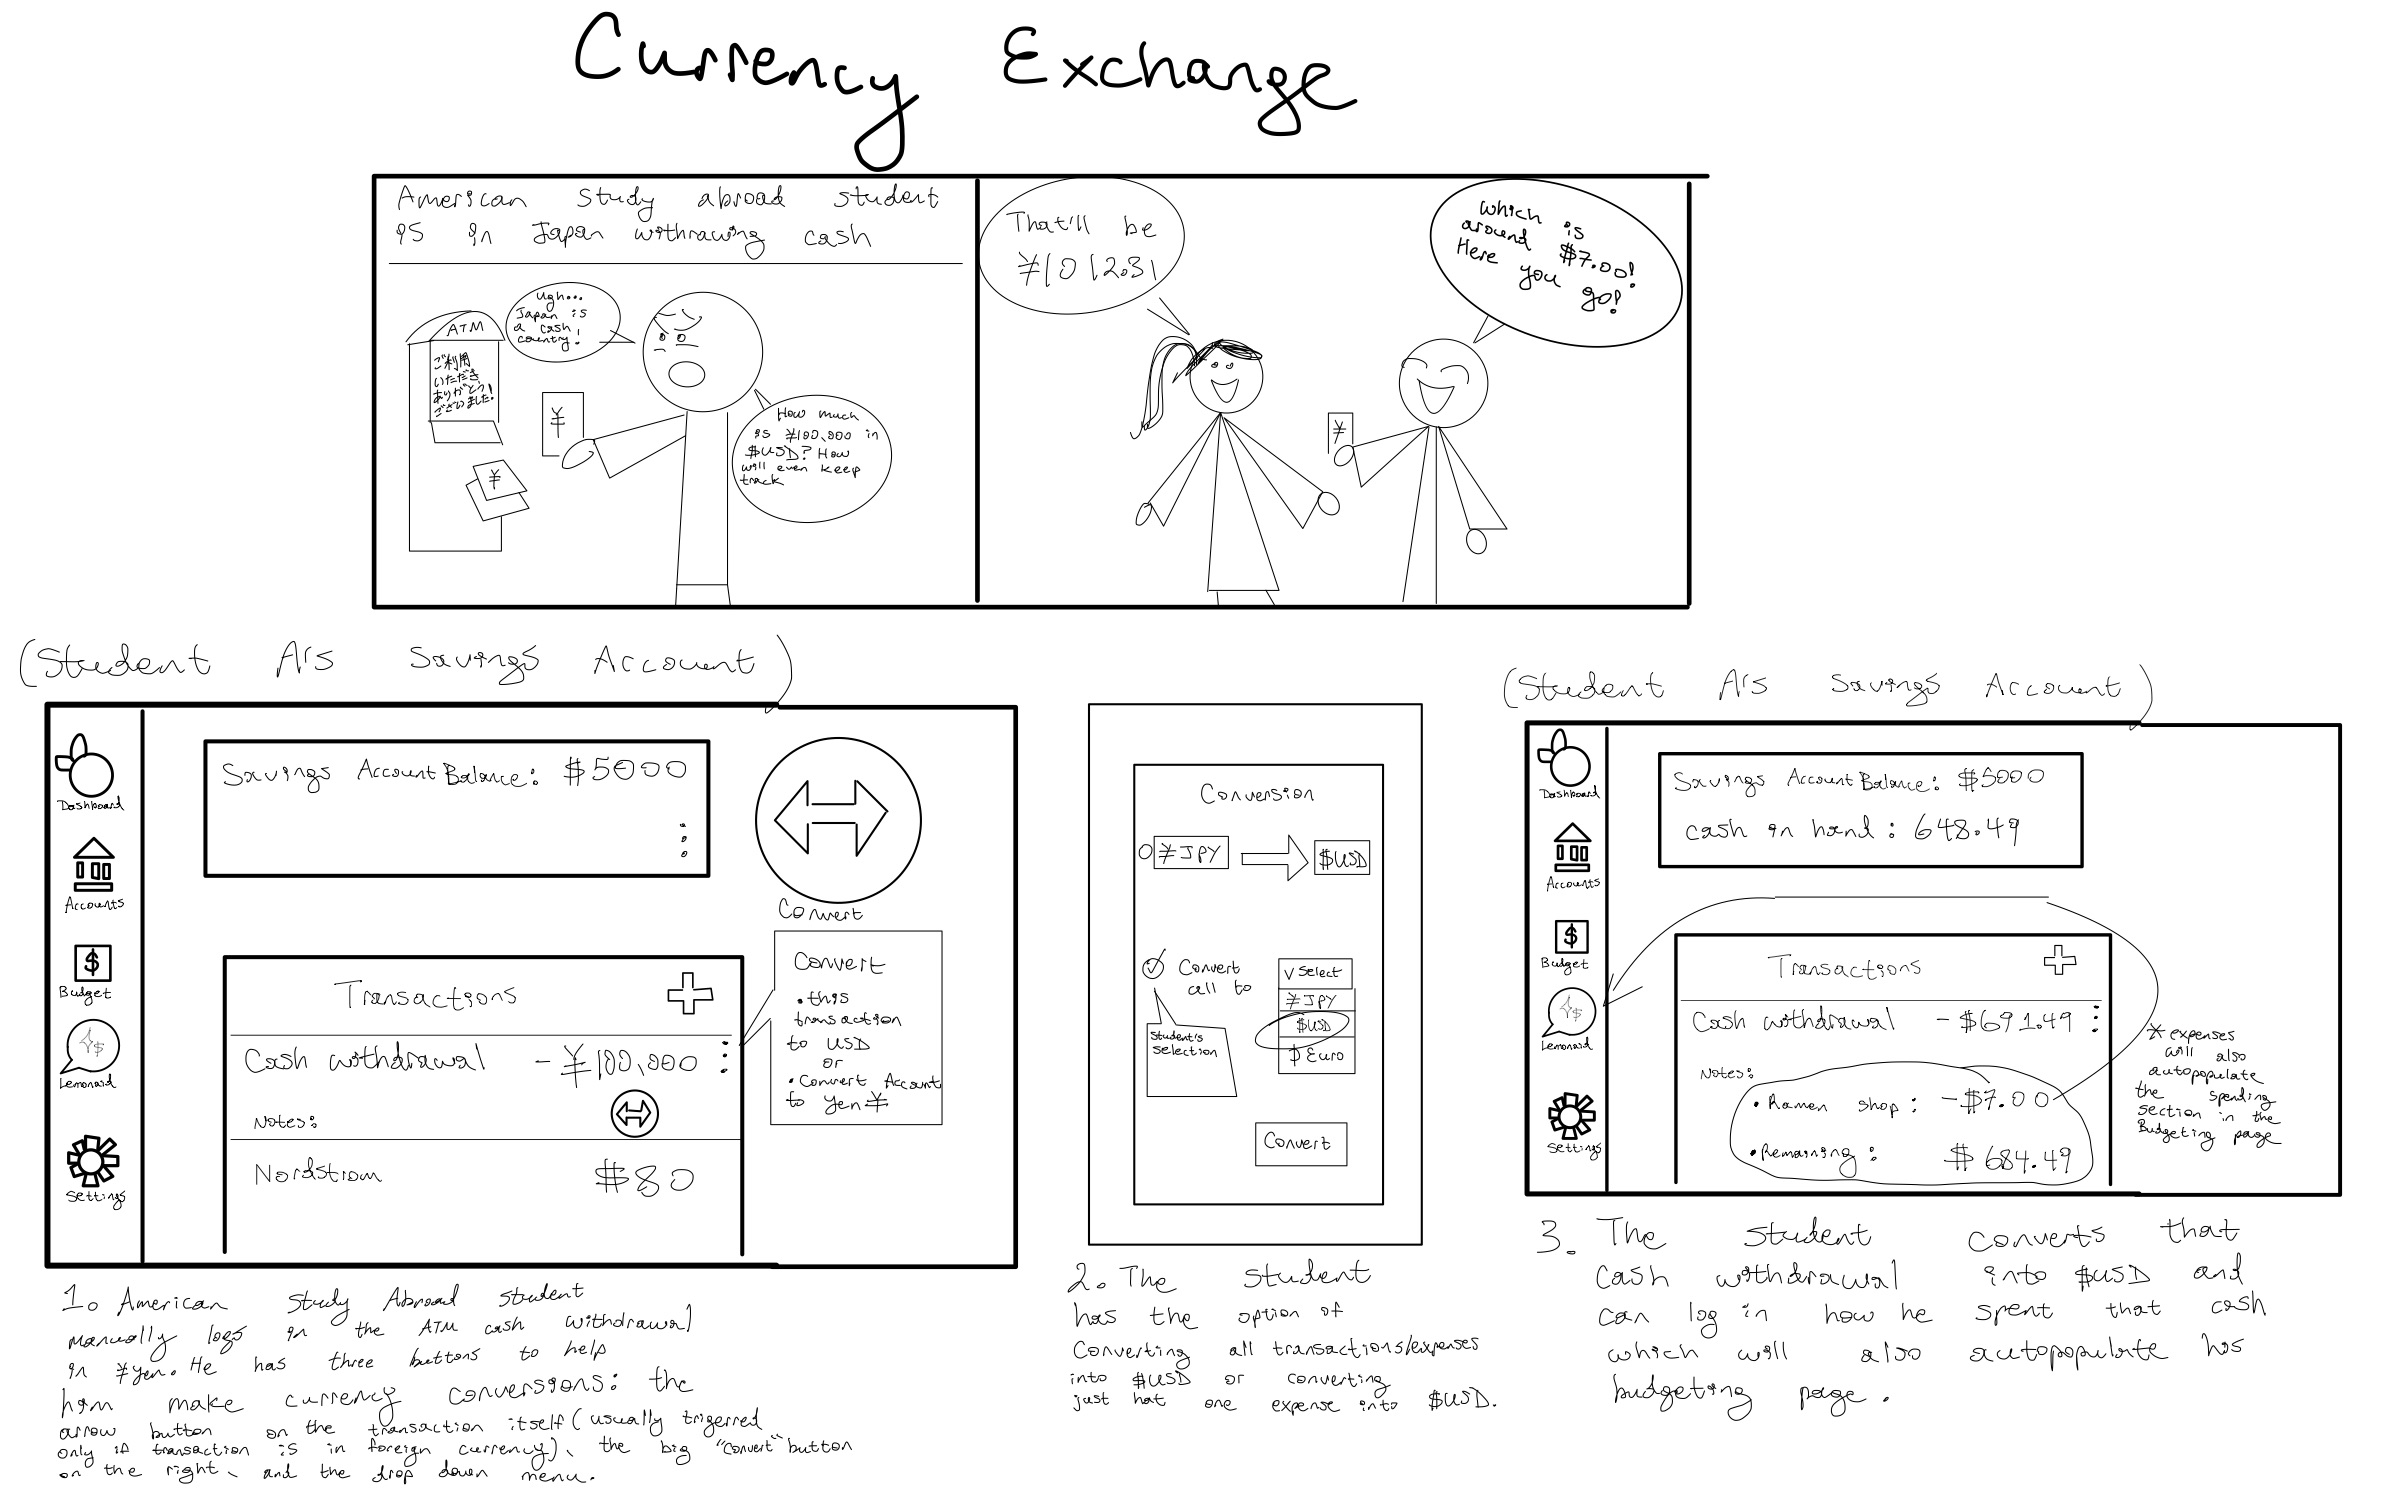 Currency Exchange
American study abroad student
is in Japan withrawing cash
Ugh...
Japan is
a cash
country!
ATM
ご利用
いただき
ありがとう!
ございました!
¥
¥
How much
is ¥100,000 in
$USD? How
will even keep
track
That'll be
¥1012.31
which is
around $7.00!
Here you
go!
¥
(Student A's Savings Account)
Dashboard
Accounts
$
Budget
$
Lemonaid
Settings
Savings Account Balance: $5000
Convert
Transactions
Cash withdrawal -¥100,000
Notes:
Nordstrom $80
Convert
• this
transaction
to USD
or
• Convert Account
to Yen ¥
1. American Study Abroad student
manually logs in the ATM cash withdrawal
in ¥yen. He has three buttons to help
him make currency conversions: the
arrow button on the transaction itself (usually trigerred
only if transaction is in foreign currency), the big "Convert" button
on the right, and the drop down menu.
Conversion
¥JPY $USD
Convert
call to
V Select
¥JPY
$USD
$ Euro
Student's
Selection
Convert
2. The student
has the option of
Converting all transactions/expenses
into $USD or converting
just hat one expense into $USD.
(Student A's Savings Account)
Dashboard
Accounts
$
Budget
$
Lemonaid
Settings
Savings Account Balance: $5000
cash in hand: 648.49
Transactions
Cash withdrawal -$691.49
Notes:
• Ramen shop: -$7.00
• Remaining: $684.49
* expenses
will also
autopopulate
the spending
section in the
Budgeting page
3. The student converts that
cash withdrawal into $USD and
can log in how he spent that cash
which will also autopopulate his
budgeting page.